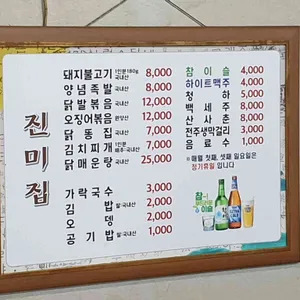 진미집
돼지불고기 1인분180g 국내산 8,000
양념족발 국내산 8,000
닭발볶음 국내산 12,000
오징어볶음 원양산 12,000
닭똥집 국내산 7,000
김치찌개 1인분 배추:국내산 7,000
닭매운탕 국내산 25,000
가락국수 3,000
김밥 쌀:국내산 2,000
오뎅 2,000
공기밥 쌀:국내산 1,000
참이슬 4,000
하이트맥주 4,000
청하 5,000
백세주 8,000
산사춘 8,000
전주생막걸리 3,000
음료수 1,000
※ 매월 첫째, 셋째 일요일은
정기휴일 입니다